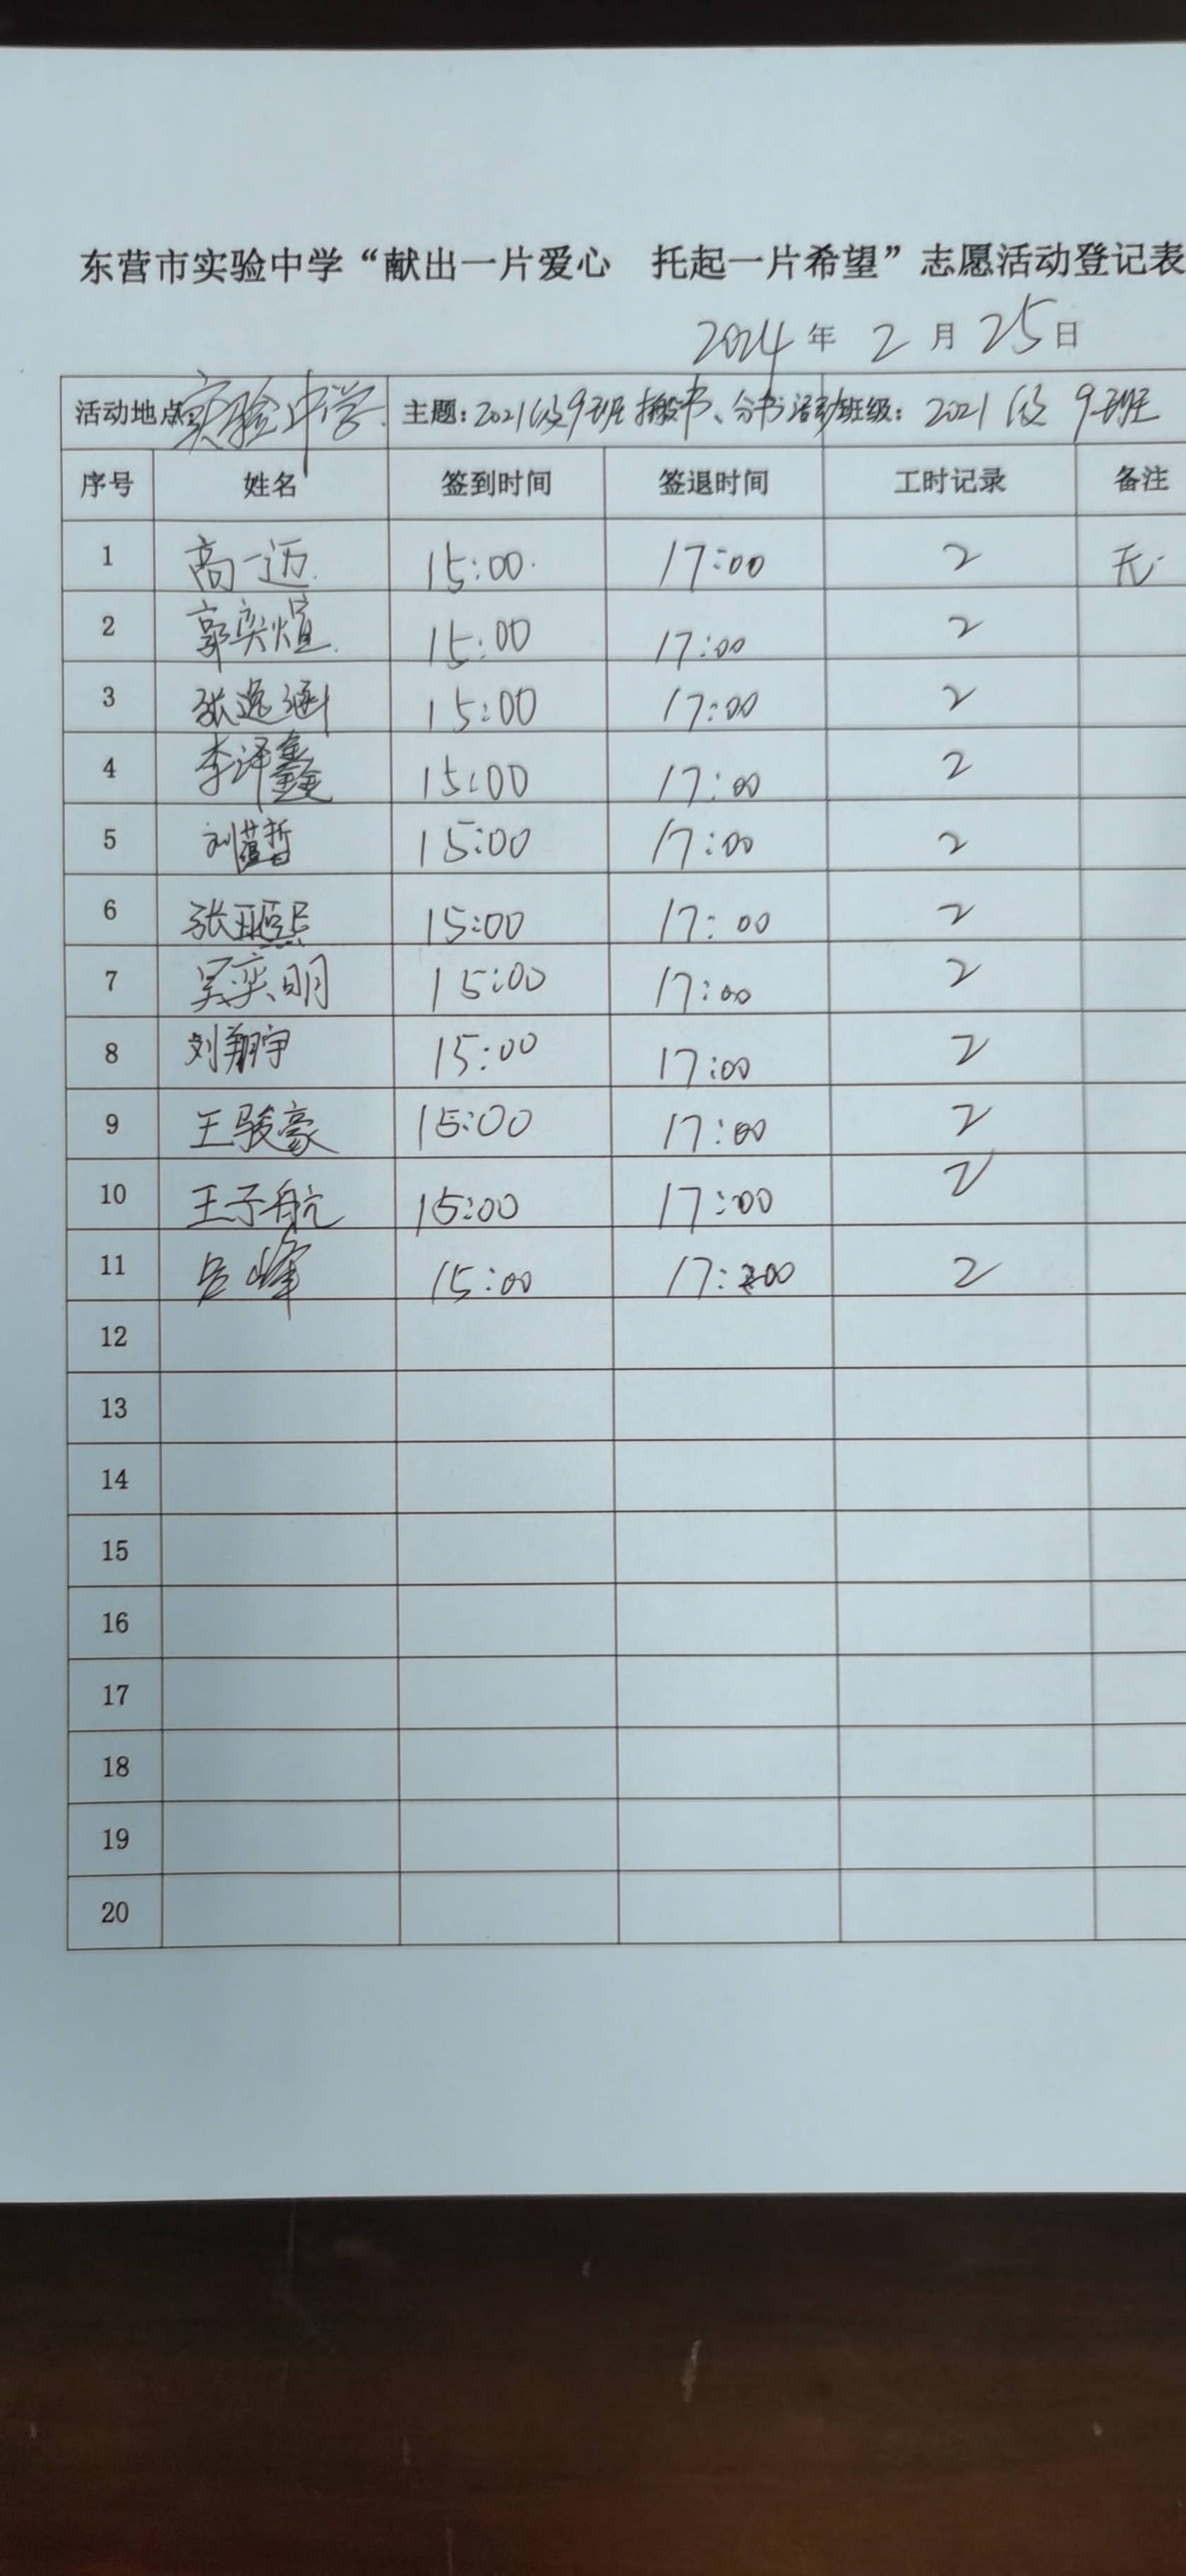 东营市实验中学“献出一片爱心 托起一片希望”志愿活动登记表
2024年2月25日
活动地点 实验中学 主题：2021级9班搬书、分书活动 班级：2021级9班
序号 姓名 签到时间 签退时间 工时记录 备注
1 高一迈 15:00 17:00 2 无
2 郭奕煊 15:00 17:00 2
3 张逸涵 15:00 17:00 2
4 李泽鑫 15:00 17:00 2
5 刘蕴哲 15:00 17:00 2
6 张熙 15:00 17:00 2
7 吴奕明 15:00 17:00 2
8 刘翔宇 15:00 17:00 2
9 王骏豪 15:00 17:00 2
10 王子航 15:00 17:00 2
11 吕峰 15:00 17:00 2
12
13
14
15
16
17
18
19
20